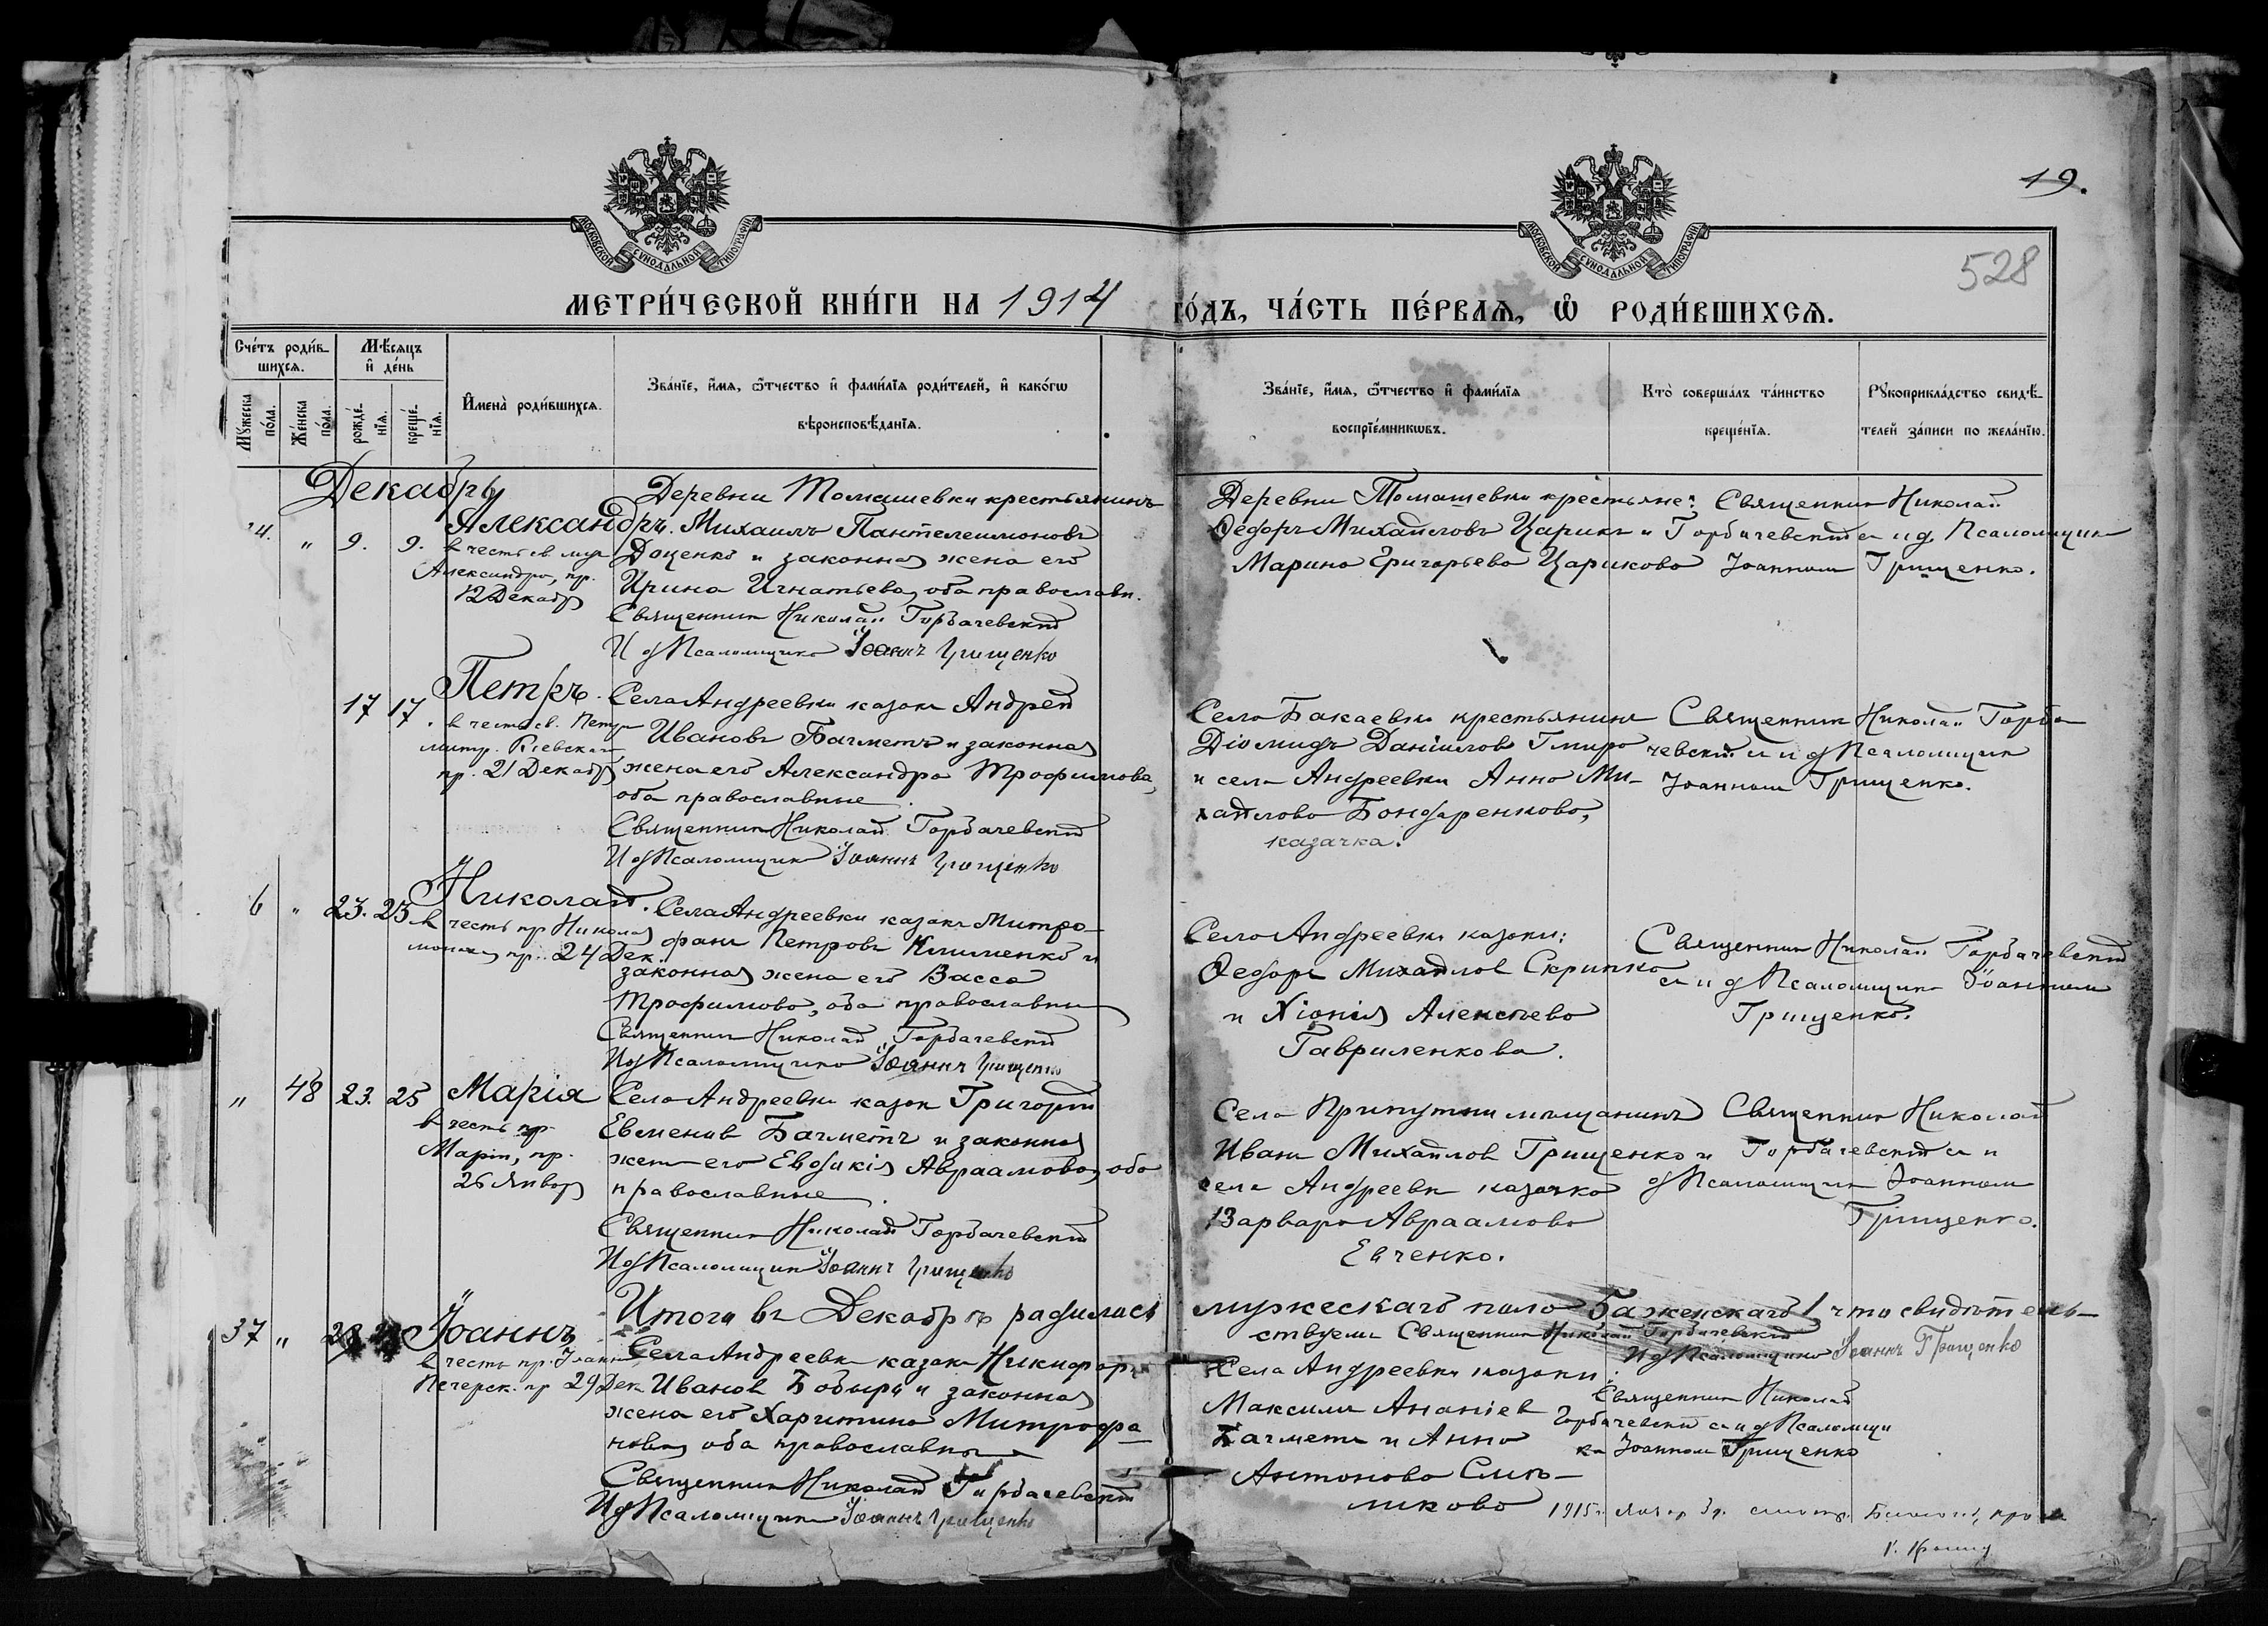 19.
528
МОСКОВСКОЙ СѴНОДАЛЬНОЙ ТИПОГРАФІИ
МОСКОВСКОЙ СѴНОДАЛЬНОЙ ТИПОГРАФІИ
МЕТРИ́ЧЕСКОЙ КНИ́ГИ НА 1914 ГО́ДЪ, ЧА́СТЬ ПЕ́РВАЯ, Ѡ҆ РОДИ́ВШИХСЯ.
Сче́тъ роди́в-
шихся.
Мѣ́сяцъ
и҆ де́нь
Мꙋ́жеска
по́ла.
Же́нска
по́ла.
рожде́-
нїя.
креще́-
нїя.
И҆мена̀ роди́вшихся.
Зва́нїе, и҆́мя, ѻ҆́тчество и҆ фами́лїя роди́телей, и҆ како́гѡ
вѣроисповѣ́данїя.
Зва́нїе, и҆́мя, ѻ҆́тчество и҆ фами́лїя
воспрїе́мникѡвъ.
Кто̀ соверша́лъ та́инство
креще́нїя.
Рꙋкоприкла́дство свидѣ́-
телей за́писи по жела́нїю.
Декабрь
4. " 9. 9. Александръ.
в честь св. муч
Александра, пр.
12 Декабр
Деревни Томашевки крестьянинъ
Михаилъ Пантелеимоновъ
Доценко и законная жена его
Ирина Игнатьева, оба православн.
Священник Николай Горбачевскій
И д Псаломщика Іоаннъ Грищенко
Деревни Томашевки крестьяне:
Ѳедоръ Михайловъ Царикъ и
Марина Григорьева Царикова
Священник Николай
Горбачевский с и д Псаломщика
Іоанном Грищенко.
17 17. Петръ.
в честь св. Петра
митр. Кіевскаго
пр. 21 Декабр
Села Андреевки казакъ Андрей
Ивановъ Бачметъ и законная
жена его Александра Трофимова,
оба православные.
Священник Николай Горбачевскій
И д Псаломщика Іоаннъ Грищенко
Села Бакаевки крестьянинъ
Діомидъ Даніиловъ
и села Андреевки Анна Ми-
хайлова Бондаренкова,
казачка.
Священник Николай Горба
чевский с и д Псаломщик
Іоанном Грищенко.
6 " 23. 25 Николай.
в честь пр Николая
монаха, пр. 24 Дек.
Села Андреевки казакъ Митро-
фанъ Петровъ Клименко и
законная жена его Васса
Трофимова, оба православны
Священник Николай Горбачевскій
И д Псаломщика Іоаннъ Грищенко
Села Андреевки казаки:
Ѳедоръ Михайлов Скрипка
и Хіонія Алексѣева
Гавриленкова.
Священник Николай Горбачевский
с и д Псаломщика Іоанном
Грищенко.
" 48 23. 25 Марія
в честь пр.
Маріи, пр.
26 Январ
Села Андреевки казак Григорій
Евменіев Бачметъ и законная
жена его Евдокія Авраамова, оба
православные.
Священник Николай Горбачевскій
И д Псаломщик Іоаннъ Грищенко
Села Припутни мѣщанинъ
Иванъ Михайлов Грищенко и
села Андреевки казачка
Варвара Авраамова
Евченко.
Священник Николай
Горбачевский с и
д Псаломщик Іоанном
Грищенко.
Итого въ Декабрѣ родилось мужескаго пола 6 а женскаго 1 что свидѣтель-
ствуемъ Священник Николай Горбачевскій
И д Псаломщика Іоаннъ Грищенко
37 " 28 Іоаннъ
в честь пр. Іоанна
Печерск. пр 29 Дек
Села Андреевки казакъ Никифоръ
Иванов Бобырь и законная
жена его Харитина Митрофа
нова, оба православны
Священник Николай Горбачевскій
И д Псаломщика Іоаннъ Грищенко
Села Андреевки казаки:
Максимъ Ананіев
Бачметъ и Анна
Антонова
Священник Николай
Горбачевский с и д Псаломщи
ка Іоанном Грищенко
1915